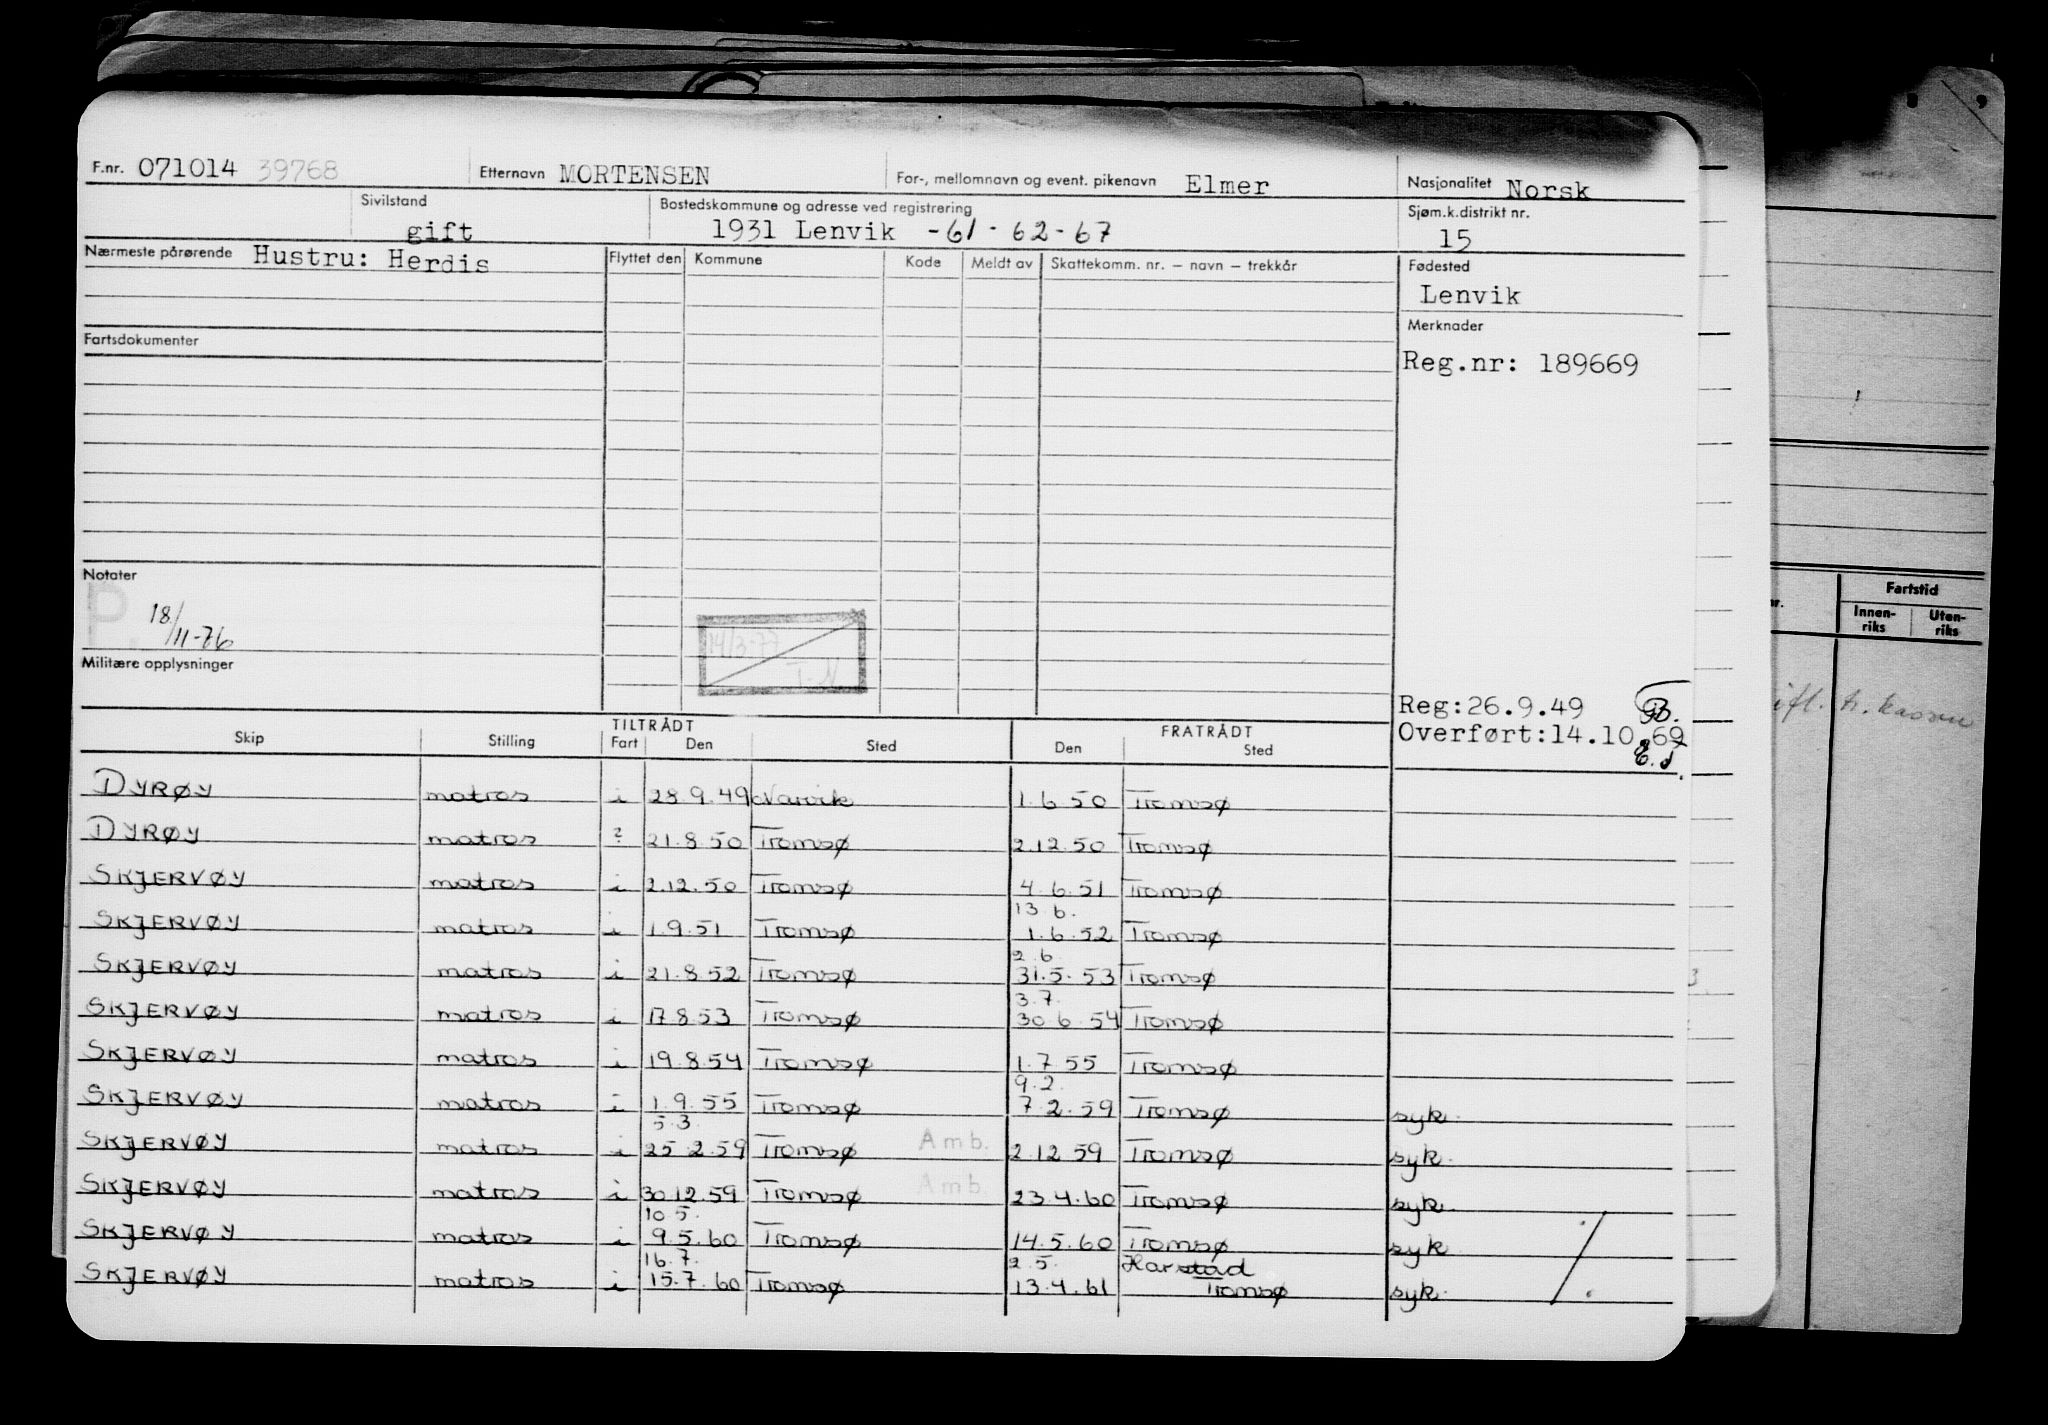 F.nr. 071014 39768 Etternavn MORTENSEN For-, mellomnavn og event. pikenavn Elmer Nasjonalitet Norsk
Sivilstand gift Bostedskommune og adresse ved registrering 1931 Lenvik -61-62-67 Sjøm.k.distrikt nr. 15
Nærmeste pårørende Hustru: Herdis Flyttet den Kommune Kode Meldt av Skattekomm. nr. – navn – trekkår Fødested
Lenvik
Fartsdokumenter Merknader
Reg.nr: 189669
Notater
P. 18/11-76
14/3-77
T-N
Militære opplysninger
Reg:26.9.49 GB.
Overført:14.10.69
E.J.
TILTRÅDT FRATRÅDT
Skip Stilling Fart Den Sted Den Sted
DYRØY matros i 28.9.49 Narvik 1.6.50 Tromsø
DYRØY matros ? 21.8.50 Tromsø 2.12.50 Tromsø
SKJERVØY matros i 2.12.50 Tromsø 4.6.51 Tromsø
13.6.
SKJERVØY matros i 1.9.51 Tromsø 1.6.52 Tromsø
2.6.
SKJERVØY matros i 21.8.52 Tromsø 31.5.53 Tromsø
3.7.
SKJERVØY matros i 17.8.53 Tromsø 30.6.54 Tromsø
SKJERVØY matros i 19.8.54 Tromsø 1.7.55 Tromsø
9.2.
SKJERVØY matros i 1.9.55 Tromsø 7.2.59 Tromsø syk.
5.3.
SKJERVØY matros i 25.2.59 Tromsø Amb. 2.12.59 Tromsø syk.
SKJERVØY matros i 30.12.59 Tromsø Amb. 23.4.60 Tromsø syk.
10.5.
SKJERVØY matros i 9.5.60 Tromsø 14.5.60 Tromsø syk.
16.7. 2.5. Harstad
SKJERVØY matros i 15.7.60 Tromsø 13.4.61 Tromsø syk.
Fartstid
nr. Innen-riks Uten-riks